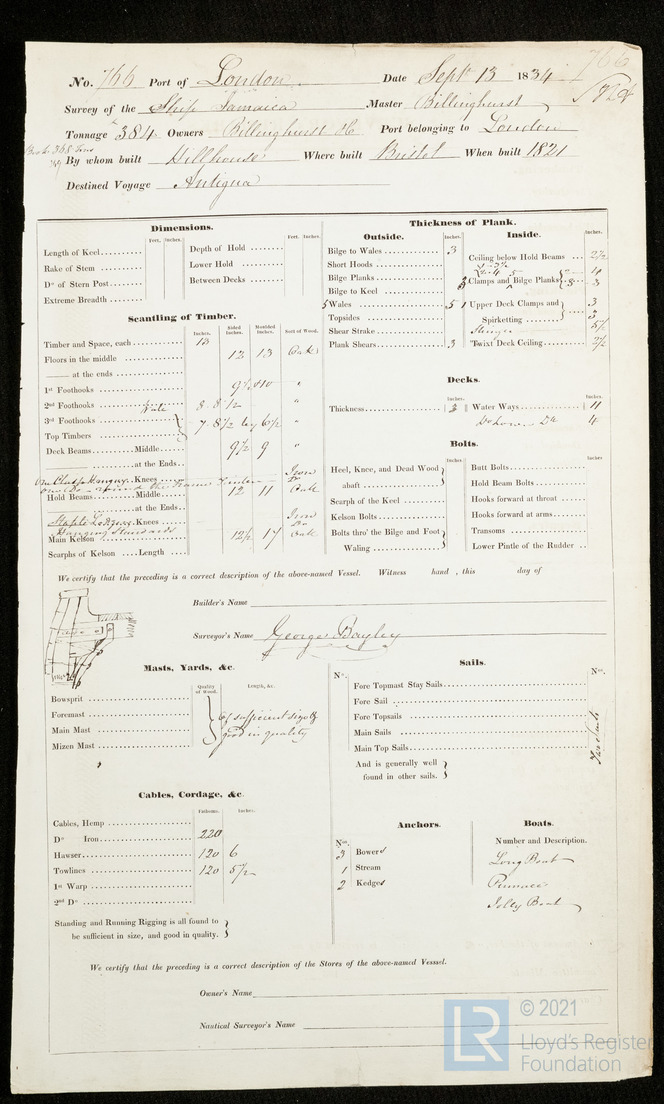 766
No. 766 Port of London Date Sept 13 1834
Survey of the Ship Jamaica Master Billinghurst
Tonnage 384 Owners Billinghurst & Port belonging to London
By whom built Hillhouse Where built Bristol When built 1821
Destined Voyage Antigua
Dimensions.
Feet. Inches. Feet. Inches.
Length of Keel
Rake of Stem
Do of Stern Post
Extreme Breadth
Depth of Hold
Lower Hold
Between Decks
Scantling of Timber.
Inches. Sided Inches. Moulded Inches. Sort of Wood.
Timber and Space, each 13
Floors in the middle 12 13 Oak
at the ends
1st Foothooks 9½ 10 "
2nd Foothooks 8 8½ "
3rd Foothooks
Top Timbers 7 8½ by 6½ "
Deck Beams Middle 9½ 9 "
at the Ends
Knees Iron Do
Hold Beams Middle 12 11 Oak
at the Ends
Staple Lodging Knees Iron Do
Hanging Standards
Main Kelson 12½ 17 Oak
Scarphs of Kelson Length
Thickness of Plank.
Outside. Inches.
Bilge to Wales 3
Short Hoods
Bilge Planks
Bilge to Keel
Wales 5
Topsides
Shear Strake
Plank Shears 3
Inside. Inches.
Ceiling below Hold Beams 2½
Clamps and Bilge Planks 3
Upper Deck Clamps and 3
Spirketting 3
5½
'Twixt Deck Ceiling 2½
Decks.
Inches. Inches.
Thickness 3 Water Ways 11
Do Lower Do 4
Bolts.
Inches. Inches
Heel, Knee, and Dead Wood
abaft
Scarph of the Keel
Kelson Bolts
Bolts thro' the Bilge and Foot
Waling
Butt Bolts
Hold Beam Bolts
Hooks forward at throat
Hooks forward at arms
Transoms
Lower Pintle of the Rudder
We certify that the preceding is a correct description of the above-named Vessel. Witness hand, this day of
Builder's Name
Surveyor's Name George Bayley
Masts, Yards, &c.
Quality of Wood. Length, &c.
Bowsprit
Foremast
Main Mast
Mizen Mast
of sufficient size &
good in quality
Sails.
No. Nos.
Fore Topmast Stay Sails
Fore Sail
Fore Topsails
Main Sails
Main Top Sails
And is generally well
found in other sails.
Cables, Cordage, &c.
Fathoms. Inches.
Cables, Hemp
Do Iron 220
Hawser 120 6
Towlines 120 5½
1st Warp
2nd Do
Standing and Running Rigging is all found to
be sufficient in size, and good in quality.
Anchors.
Nos.
3 Bowers
1 Stream
2 Kedges
Boats.
Number and Description.
Long Boat
Pinnace
Jolly Boat
We certify that the preceding is a correct description of the Stores of the above-named Vessel.
Owner's Name
Nautical Surveyor's Name
LR © 2021
Lloyd's Register
Foundation